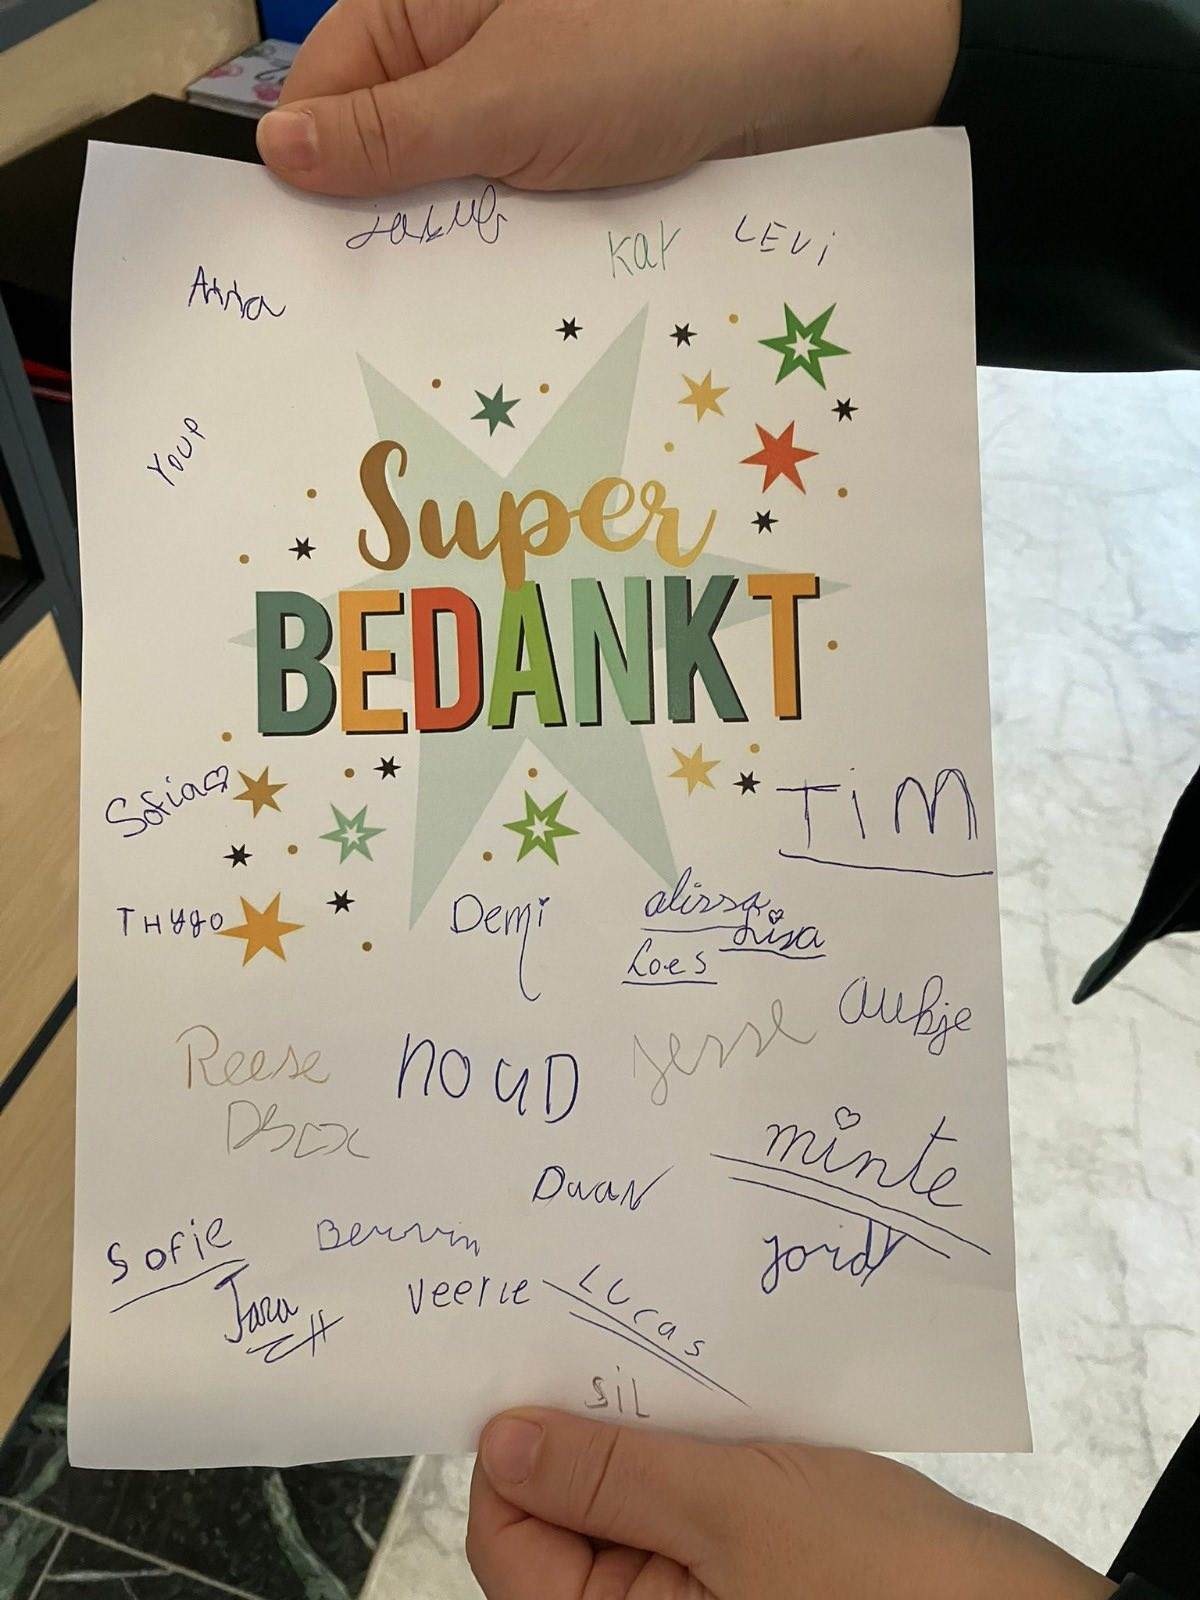 Jakub
Kay
LEVi
Anna
YOUP
Super
BEDANKT
Sofia
TiM
THYGO
Demi
alissa
Lisa
Loes
aukje
Reese
NOUD
Jesse
minte
Daan
Sofie
Jordy
Jara
Veerle
LUcas
SiL